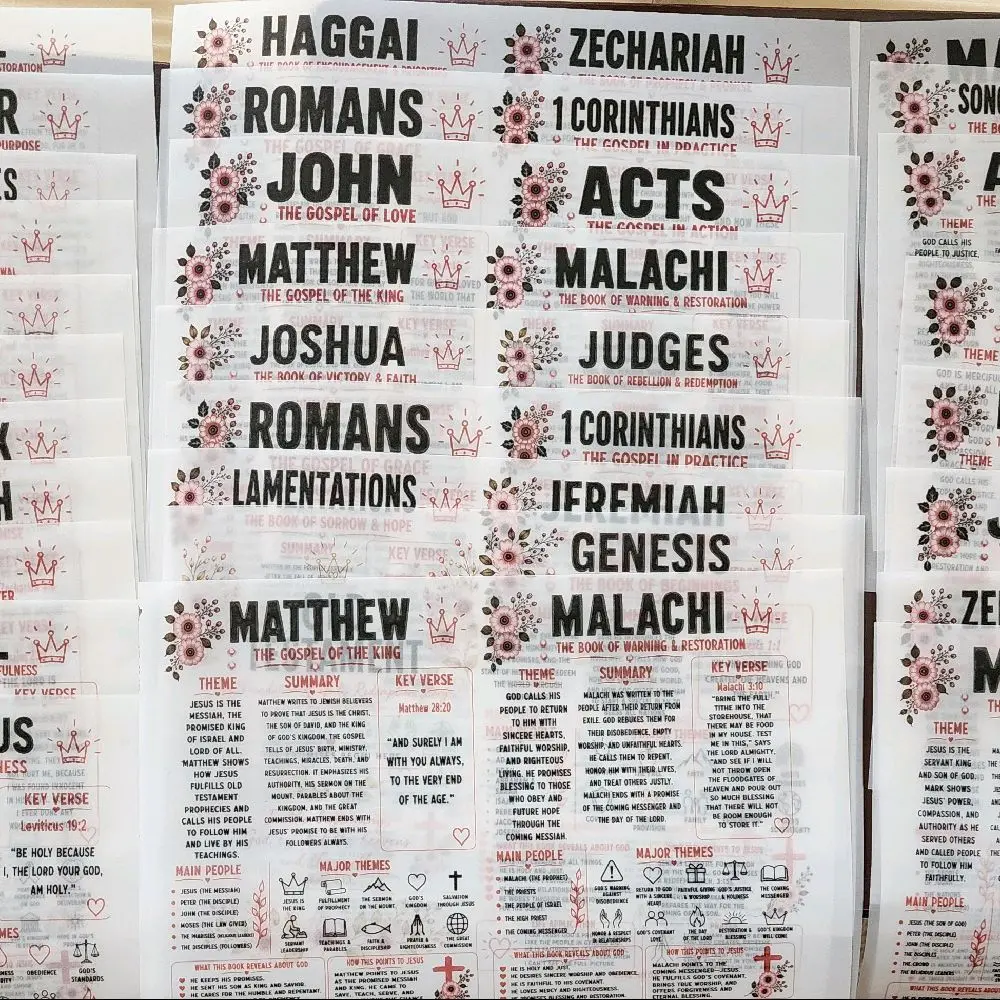 ESTORATION
PURPOSE
HAGGAI
THE BOOK OF ENCOURAGEMENT & PRIORITIES
ZECHARIAH
ROMANS
1 CORINTHIANS
THE GOSPEL IN PRACTICE
JOHN
THE GOSPEL OF LOVE
ACTS
THE GOSPEL IN ACTION
MATTHEW
THE GOSPEL OF THE KING
MALACHI
THE BOOK OF WARNING & RESTORATION
JOSHUA
THE BOOK OF VICTORY & FAITH
JUDGES
THE BOOK OF REBELLION & REDEMPTION
ROMANS
THE GOSPEL OF GRACE
1 CORINTHIANS
THE GOSPEL IN PRACTICE
LAMENTATIONS
THE BOOK OF SORROW & HOPE
SUMMARY
KEY VERSE
JEREMIAH
GENESIS
THE BOOK OF BEGINNINGS
MATTHEW
THE GOSPEL OF THE KING
THEME
JESUS IS THE
MESSIAH, THE
PROMISED KING
OF ISRAEL AND
LORD OF ALL.
MATTHEW SHOWS
HOW JESUS
FULFILLS OLD
TESTAMENT
PROPHECIES AND
CALLS HIS PEOPLE
TO FOLLOW HIM
AND LIVE BY HIS
TEACHINGS.
SUMMARY
MATTHEW WRITES TO JEWISH BELIEVERS
TO PROVE THAT JESUS IS THE CHRIST,
THE SON OF DAVID, AND THE KING
OF GOD'S KINGDOM. THE GOSPEL
TELLS OF JESUS' BIRTH, MINISTRY,
TEACHINGS, MIRACLES, DEATH, AND
RESURRECTION. IT EMPHASIZES HIS
AUTHORITY, HIS SERMON ON THE
MOUNT, PARABLES ABOUT THE
KINGDOM, AND THE GREAT
COMMISSION. MATTHEW ENDS WITH
JESUS' PROMISE TO BE WITH HIS
FOLLOWERS ALWAYS.
KEY VERSE
Matthew 28:20
"AND SURELY I AM
WITH YOU ALWAYS,
TO THE VERY END
OF THE AGE."
MAIN PEOPLE
JESUS (THE MESSIAH)
PETER (THE DISCIPLE)
JOHN (THE DISCIPLE)
MOSES (THE LAW GIVER)
THE PHARISEES (RELIGIOUS LEADERS)
THE DISCIPLES (FOLLOWERS)
MAJOR THEMES
JESUS IS
THE KING
FULFILLMENT
OF PROPHECY
THE SERMON
ON THE MOUNT
GOD'S
KINGDOM
SALVATION
THROUGH JESUS
SERVANT
LEADERSHIP
TEACHINGS &
PARABLES
FAITH &
DISCIPLESHIP
PRAYER &
RIGHTEOUSNESS
THE GREAT
COMMISSION
WHAT THIS BOOK REVEALS ABOUT GOD
HE KEEPS HIS PROMISES.
HE SENT HIS SON AS KING AND SAVIOR.
HE CARES FOR THE HUMBLE AND REPENTANT.
HOW THIS POINTS TO JESUS
MATTHEW PRESENTS JESUS
AS THE PROMISED MESSIAH
AND KING. HE CAME TO
SAVE, TEACH, SERVE, AND
MALACHI
THE BOOK OF WARNING & RESTORATION
THEME
GOD CALLS HIS
PEOPLE TO RETURN
TO HIM WITH
SINCERE HEARTS,
FAITHFUL WORSHIP,
AND RIGHTEOUS
LIVING. HE PROMISES
BLESSING TO THOSE
WHO OBEY AND
FUTURE HOPE
THROUGH THE
COMING MESSIAH.
SUMMARY
MALACHI WAS WRITTEN TO THE
PEOPLE AFTER THEIR RETURN FROM
EXILE. GOD REBUKES THEM FOR
THEIR DISOBEDIENCE, EMPTY
WORSHIP, AND UNFAITHFUL HEARTS.
HE CALLS THEM TO REPENT,
HONOR HIM WITH THEIR LIVES,
AND TREAT OTHERS JUSTLY.
MALACHI ENDS WITH A PROMISE
OF THE COMING MESSENGER AND
THE DAY OF THE LORD.
KEY VERSE
Malachi 3:10
"BRING THE FULL
TITHE INTO THE
STOREHOUSE, THAT
THERE MAY BE FOOD
IN MY HOUSE. TEST
ME IN THIS," SAYS
THE LORD ALMIGHTY,
"AND SEE IF I WILL
NOT THROW OPEN
THE FLOODGATES OF
HEAVEN AND POUR OUT
SO MUCH BLESSING
THAT THERE WILL NOT
BE ROOM ENOUGH
TO STORE IT."
MAIN PEOPLE
MALACHI (THE PROPHET)
THE PRIESTS
THE PEOPLE OF ISRAEL
THE HIGH PRIEST
THE COMING MESSENGER
MAJOR THEMES
GOD'S WARNING
AGAINST
DISOBEDIENCE
RETURN TO GOD
WITH A SINCERE
HEART
FAITHFUL GIVING
& WORSHIP
GOD'S JUSTICE
& HOLINESS
THE COMING
MESSENGER
HONOR & RESPECT
IN RELATIONSHIPS
GOD'S COVENANT
LOVE
THE DAY
OF THE LORD
RESTORATION &
BLESSING
GOD'S KINGDOM
WILL COME
WHAT THIS BOOK REVEALS ABOUT GOD
HE IS HOLY AND JUST.
HE DESIRES SINCERE WORSHIP AND OBEDIENCE.
HE IS FAITHFUL TO HIS COVENANT.
HE LOVES MERCY AND RIGHTEOUSNESS.
HE PROMISES BLESSING AND RESTORATION.
HOW THIS POINTS TO JESUS
MALACHI POINTS TO THE
COMING MESSENGER—JESUS.
HE FULFILLS GOD'S COVENANT,
BRINGS TRUE WORSHIP, AND
OFFERS FORGIVENESS AND
ETERNAL BLESSING.
US
NESS
KEY VERSE
Leviticus 19:2
"BE HOLY BECAUSE
I, THE LORD YOUR GOD,
AM HOLY."
MES
OBEDIENCE
GOD'S
STANDARDS
SONG
THE B
THE
THEME
GOD CALLS HIS
PEOPLE TO JUSTICE,
THEME
THEME
ZE
M
THEME
JESUS IS THE
SERVANT KING
AND SON OF GOD.
MARK SHOWS
JESUS' POWER,
COMPASSION, AND
AUTHORITY AS HE
SERVED OTHERS
AND CALLED PEOPLE
TO FOLLOW HIM
FAITHFULLY.
MAIN PEOPLE
JESUS (THE SON OF GOD)
PETER (THE DISCIPLE)
JOHN (THE DISCIPLE)
THE DISCIPLES
THE CROWD
THE RELIGIOUS LEADERS